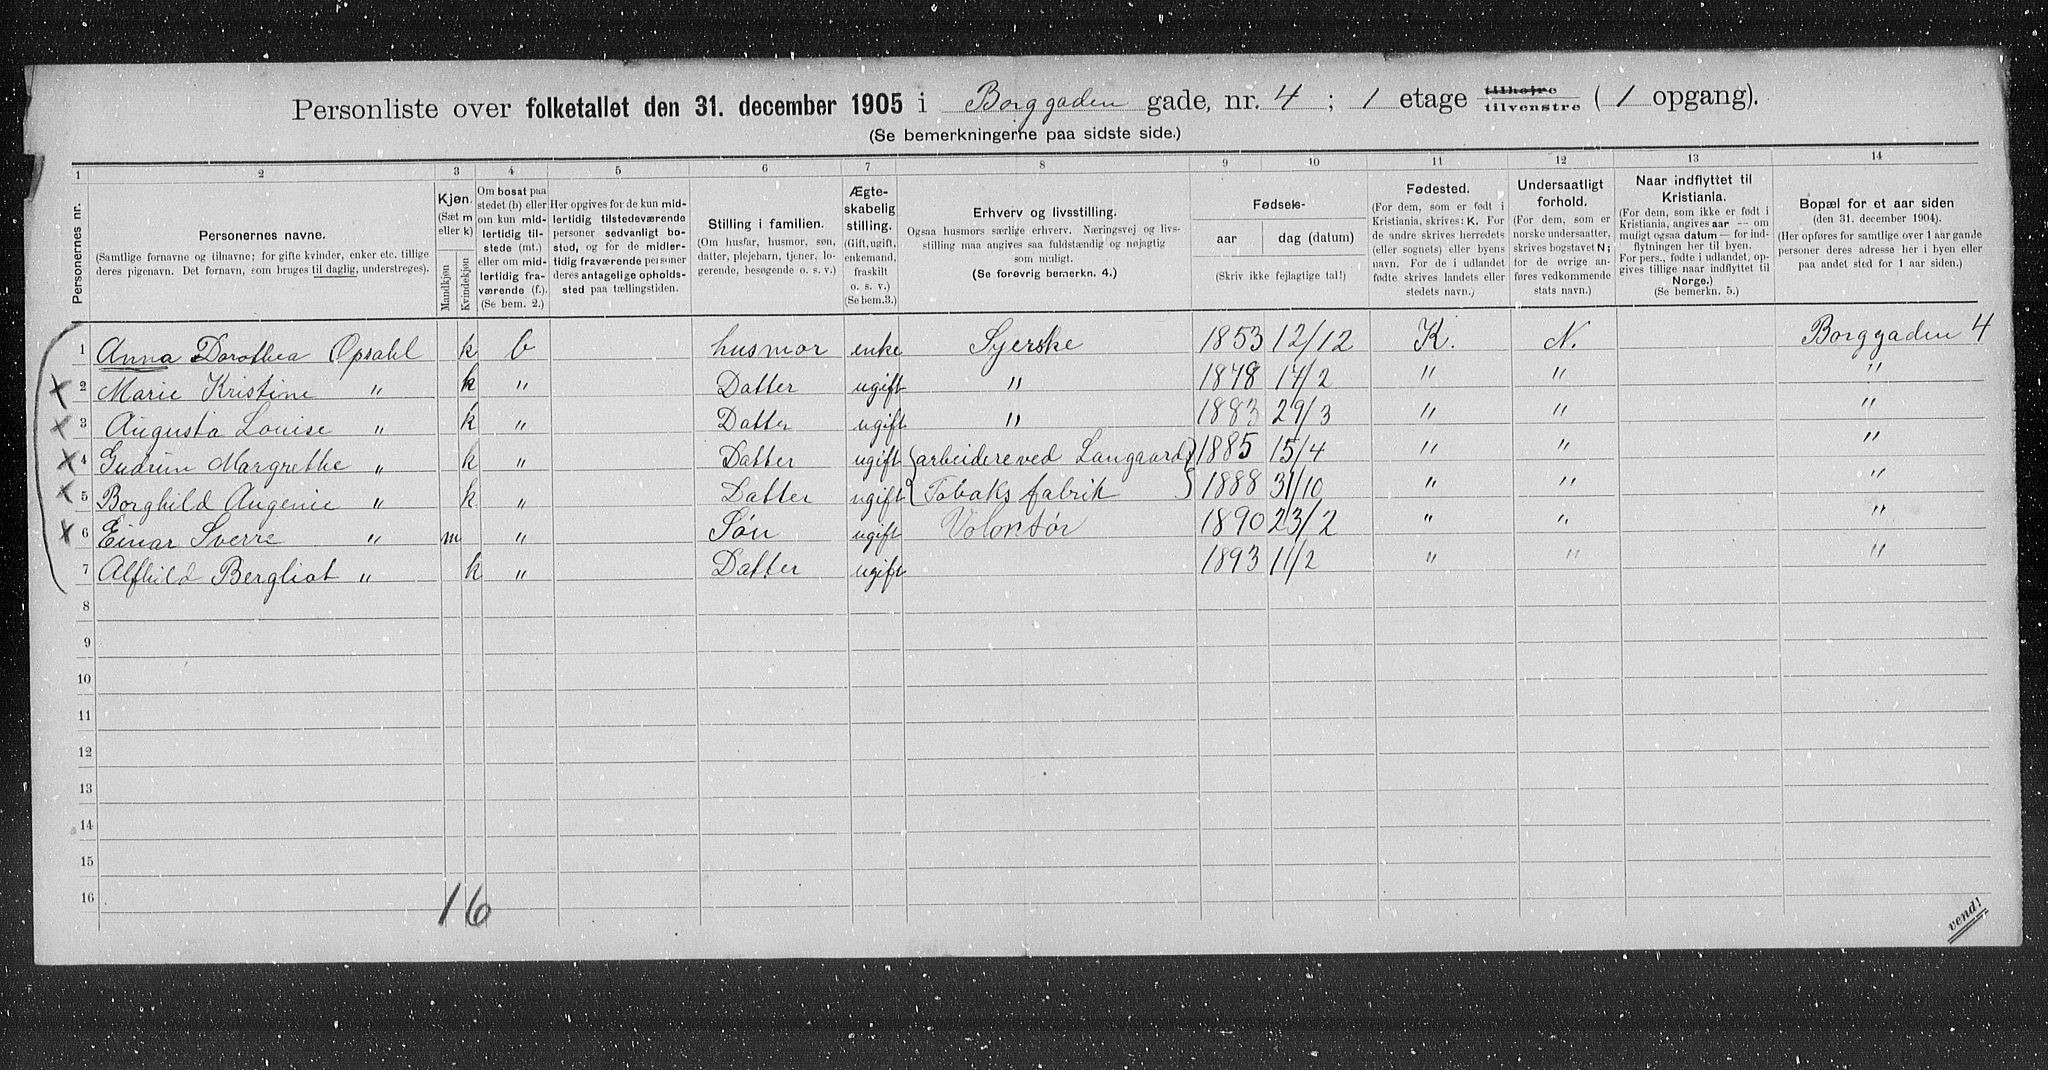 Personliste over folketallet den 31. december 1905 i Borggaden gade, nr. 4 ; 1 etage tilhøjre tilvenstre ( 1 opgang).
(Se bemerkningerne paa sidste side.)
1 2 3 4 5 6 7 8 9 10 11 12 13 14
Personernes nr.
Personernes navne.
(Samtlige fornavne og tilnavne; for gifte kvinder, enker etc. tillige
deres pigenavn. Det fornavn, som bruges til daglig, understreges).
Kjøn.
(Sæt m
eller k)
Mandkjøn
Kvindekjøn
Om bosat paa
stedet (b) eller
om kun mid-
lertidig til-
stede (mt.)
eller om mid-
lertidig fra-
værende (f.).
(Se bem. 2.)
Her opgives for de kun mid-
lertidig tilstedeværende
personer sedvanlig bo-
stad, og for de midler-
tidig fraværende personer
deres antagelige opholds-
sted paa tællingstiden.
Stilling i familien.
(Om husfar, husmor, søn,
datter, plejebarn, tjener, lo-
gerende, besøgende o. s. v.)
Ægte-
skabelig
stilling.
(Gift, ugift,
enkemand,
fraskilt
o. s. v.)
(Se bem.3.)
Erhverv og livsstilling.
Ogsaa husmors særlige erhverv. Næringsvej og livs-
stilling maa angives saa fuldstændig og nøjagtig
som muligt.
(Se forøvrig bemerkn. 4.)
Fødsels-
aar
dag (datum)
(Skriv ikke fejlagtige tal!)
Fødested.
(For dem, som er født i
Kristiania, skrives: K. For
de andre skrives herredets
(eller sognets) eller byens
navn. For de i udlandet
fødte skrives landets eller
stedets navn.)
Undersaatligt
forhold.
(For dem, som er
norske undersaatter,
skrives bogstavet N;
for de øvrige an-
føres vedkommende
stats navn.)
Naar indflyttet til
Kristiania.
(For dem, som ikke er født i
Kristiania, angives aar — om
muligt ogsaa datum — for ind-
flytningen her til byen.
For pers., fødte i udlandet, op-
gives tillige naar indflyttet til
Norge.)
(Se bemerkn. 5.)
Bopæl for et aar siden
(den 31. december 1904).
(Her opføres for samtlige over 1 aar gamle
personer deres adresse her i byen eller
paa andet sted for 1 aar siden.)
1 Anna Dorothea Opsahl k b husmor enke Syerske 1853 12/12 K. N. Borggaden 4
x 2 Marie Kristine " k " Datter ugift " 1878 17/2 " " "
x 3 Augusta Louise " k " Datter ugift " 1883 29/3 " " "
x 4 Gudrun Margrethe " k " Datter ugift { arbeidere ved Langaard } 1885 15/4 " " "
x 5 Borghild Augenie " k " Datter ugift { Tobaks fabrik } 1888 31/10 " " "
x 6 Einar Sverre " m " Søn ugift Volontør 1890 23/2 " " "
7 Alfhild Bergliot " k " Datter ugift 1893 11/2 " " "
8
9
10
11
12
13
14
15
16
1 6
vend!